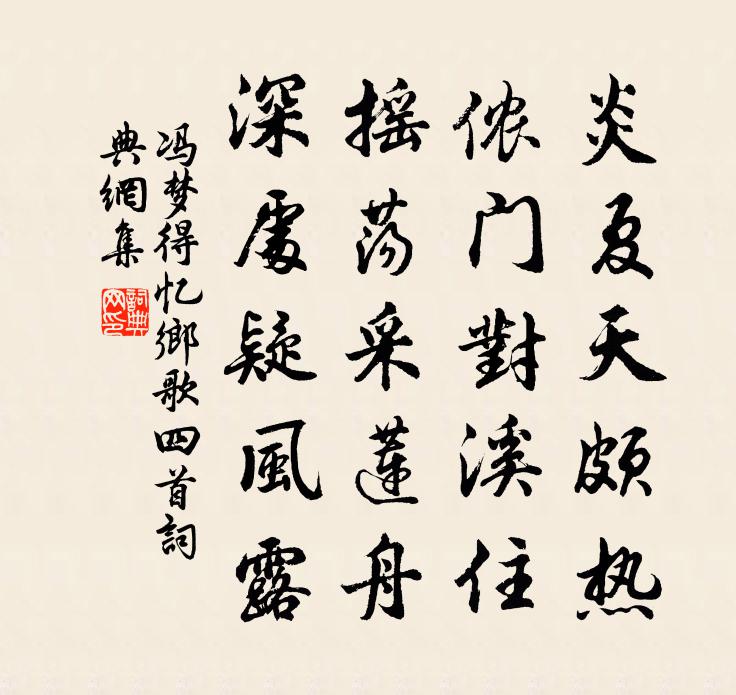 炎夏天颇热
侬门對溪住
摇荡采莲舟
深處疑風露
冯梦得忆鄉歌四首詞
典網集
詞典
网印